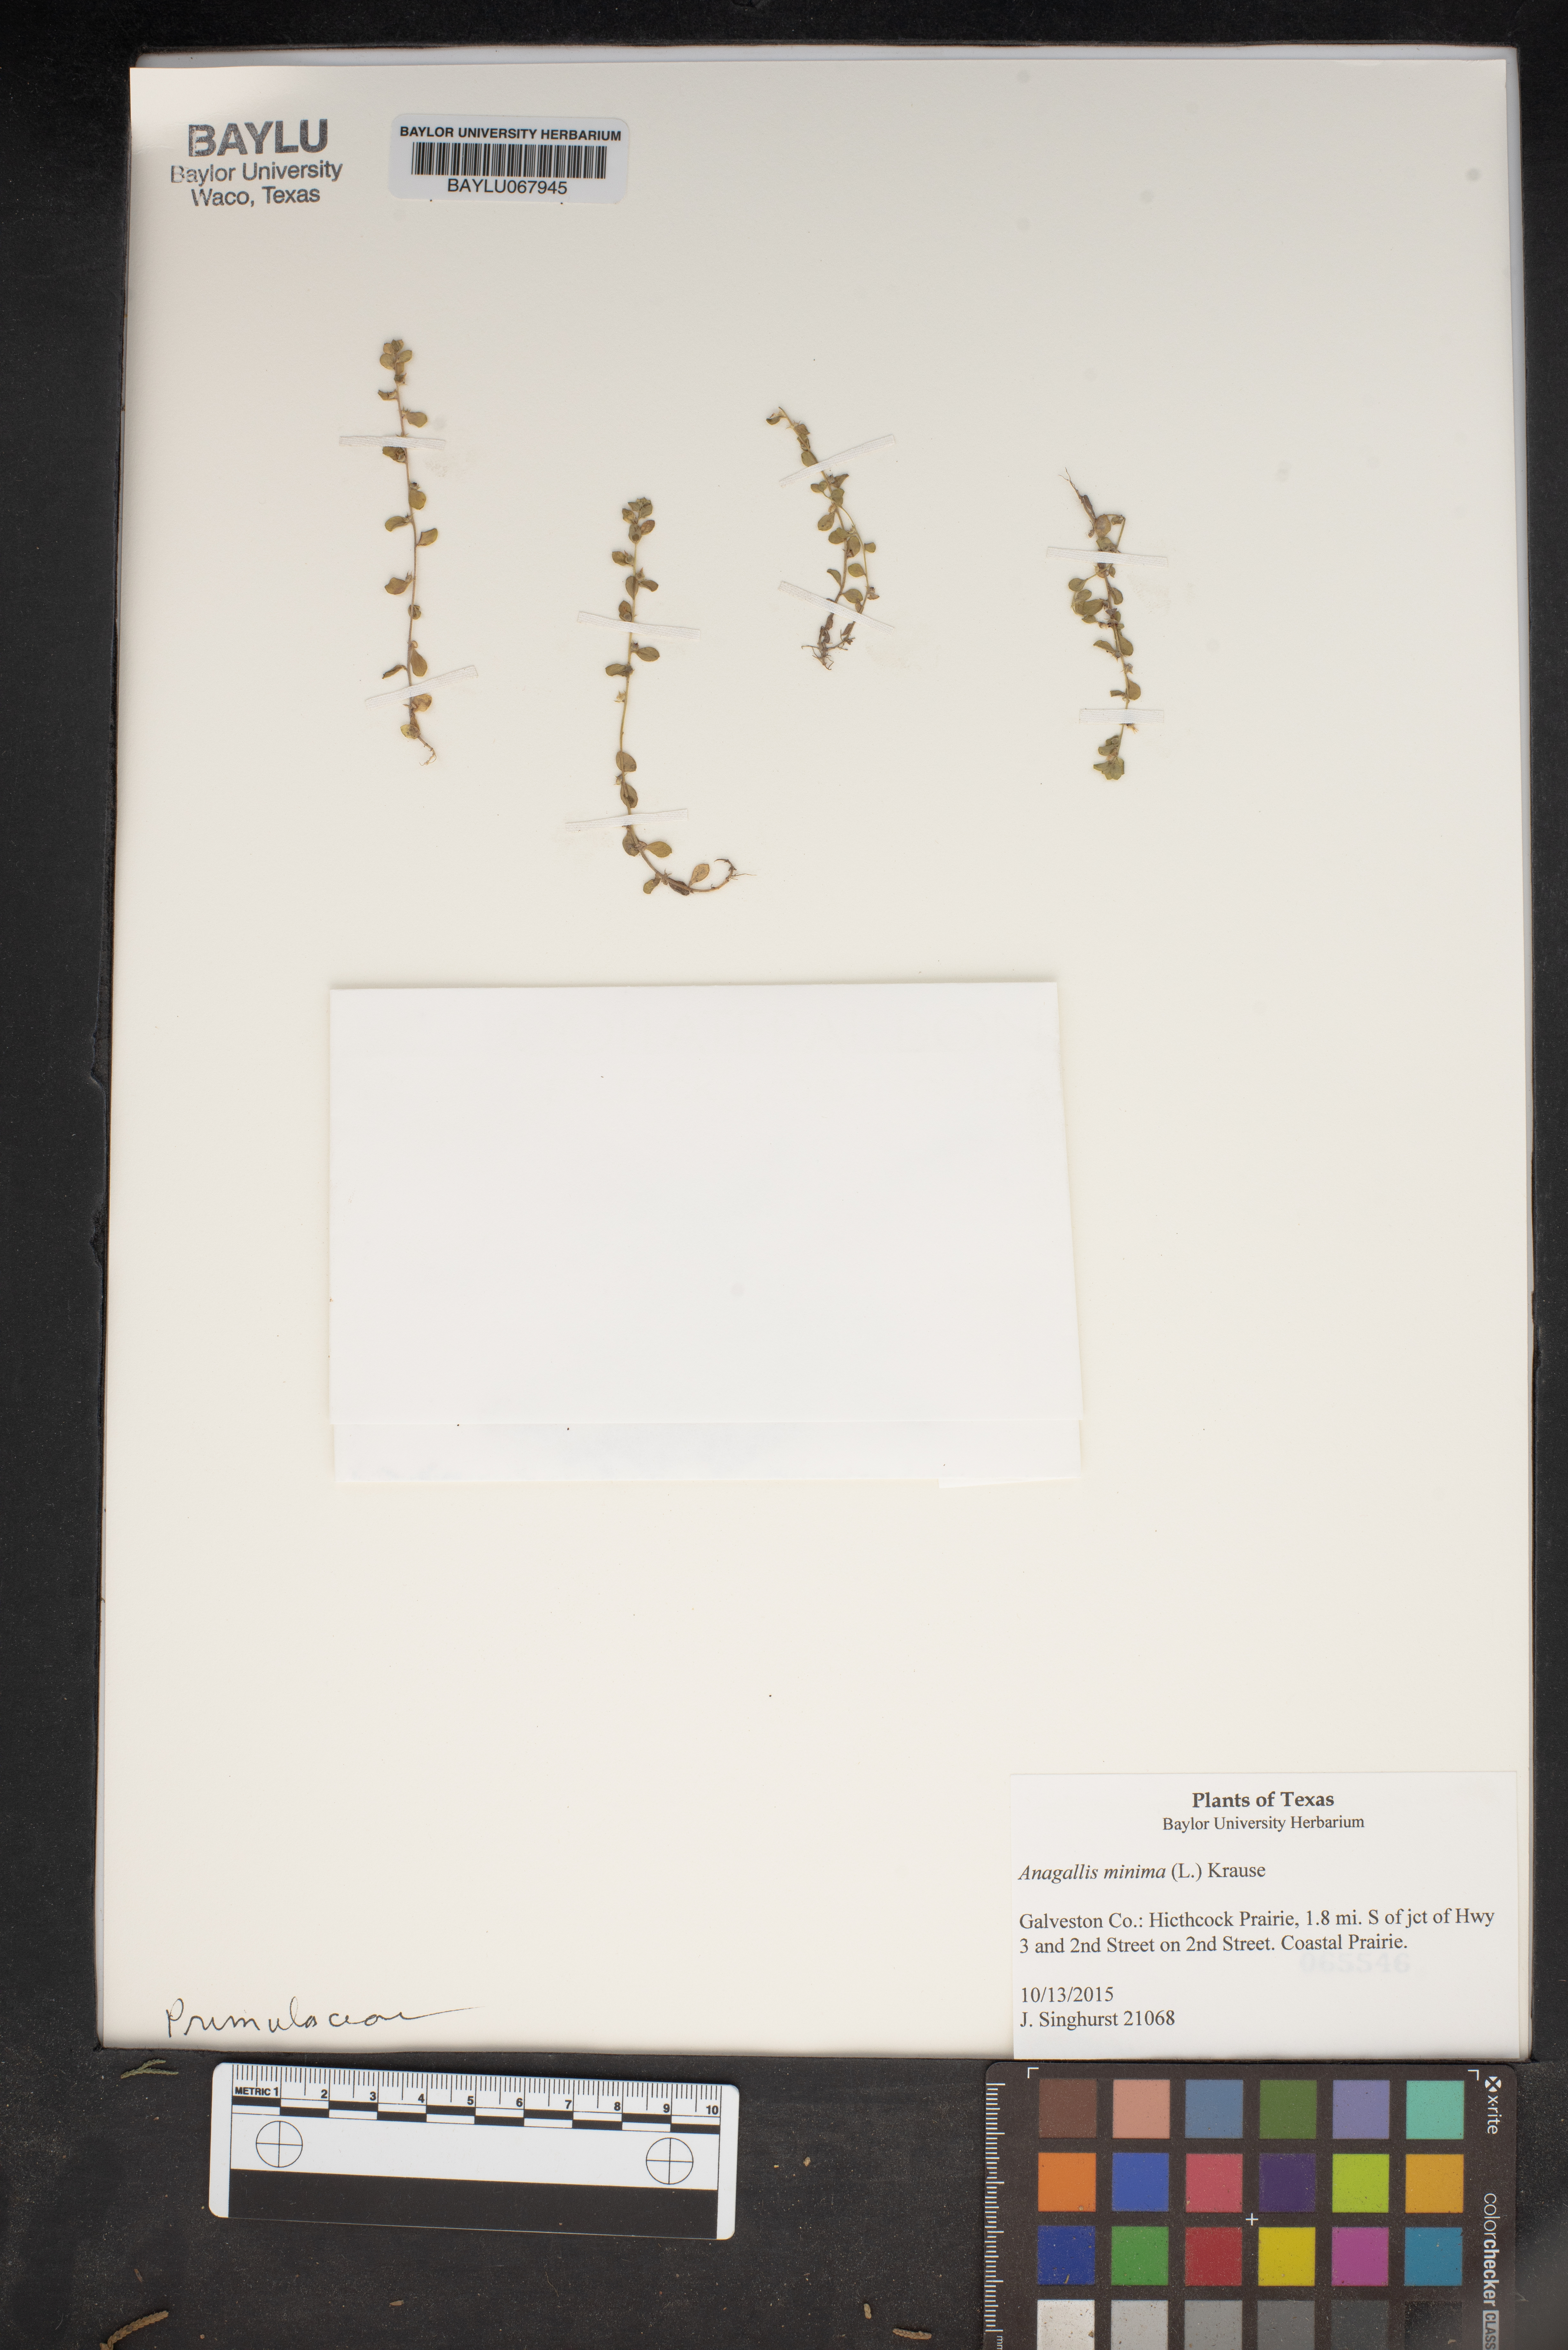 BAYLU
Baylor University
Waco, Texas
BAYLOR UNIVERSITY HERBARIUM
BAYLU067945
Plants of Texas
Baylor University Herbarium
Anagallis minima (L.) Krause
Galveston Co.: Hicthcock Prairie, 1.8 mi. S of jct of Hwy
3 and 2nd Street on 2nd Street. Coastal Prairie.
10/13/2015
J. Singhurst 21068
Primulaceae
METRIC 1 2 3 4 5 6 7 8 9 10
x-rite
colorchecker CLASS